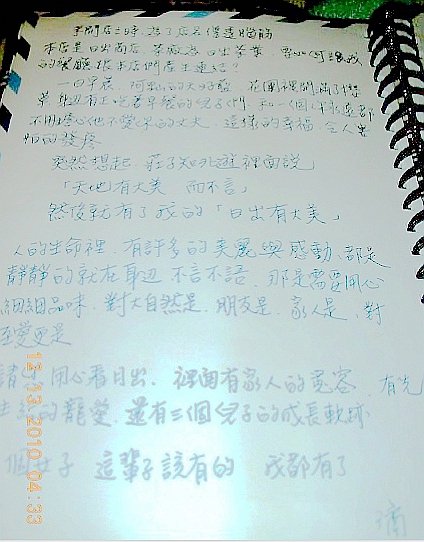 要開店之時,為了店名傷透腦筋
本店是日出商店,茶廠為日出茶葉
的餐廳 本店們產生連結?
一日早晨,阿里山的大好 花園裡開滿了櫻
菜,身邊有正吃著早餐的兒子們 和一個
不用擔心他不愛呆的丈夫,這樣的幸福,令人害
怕的發疼
突然想起 莊子知北遊裡面說」
「天地有大美 而不言」
然後就有了我的「日出有大美」
人的生命裡,有許多的美麗與感動,都是
靜靜的就在身边 不言不語,那是需要用心
細細品味,對大自然是,朋友是,家人是,對
至愛更是
請 用心看日出,裡面有家人的寬容,有先
生 的寵愛,還有三個兒子的成長軌跡
個女子 這輩子該有的 我都有了
12/13/2010 04:33